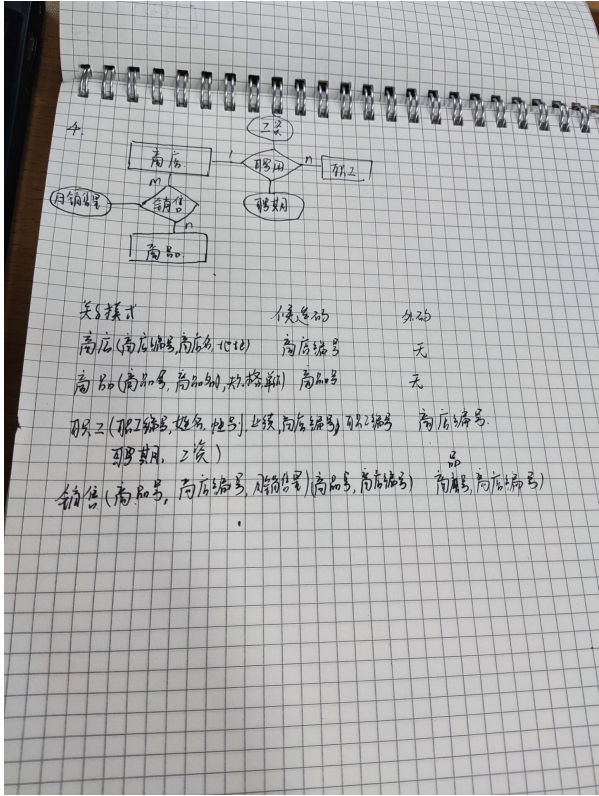 4.
工资
商店 1 聘用 n 职工
m
月销售量 销售 聘期
n
商品
关系模式 候选码 外码
商店(商店编号,商店名,地址) 商店编号 无
商品(商品号,商品名,规格,单价) 商品号 无
职工(职工编号,姓名,性别,业绩,商店编号, 职工编号 商店编号.
聘期,工资)
品
销售(商品号,商店编号,月销售量)(商品号,商店编号) 商号,商店编号)